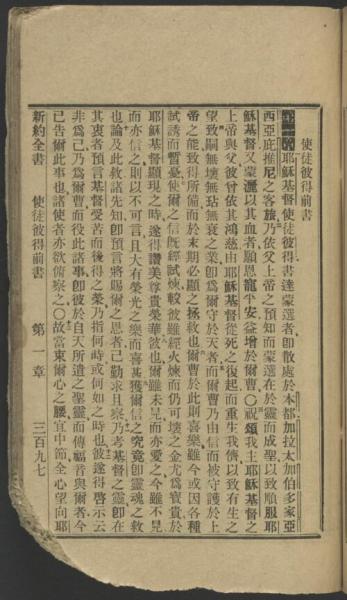 使徒彼得前書
耶穌基督使徒彼得書達蒙選者卽散處於本都加拉太加伯多家亞
西亞庇推尼之客旅乃依父上帝之預知而蒙選在於靈而成聖以致順服耶
穌基督又蒙灑以其血者願恩寵平安益增於爾曹〇祝頌我主耶穌基督之
上帝與父彼曾依其鴻慈由耶穌基督從死之復起而重生我儕以致有生之
望致嗣無壞無玷無衰之業卽爲爾守於天者而爾曹乃由信而被守護於上
帝之能致得所備而於末期必顯之拯救也爾曹於此則喜樂雖今或因各種
試誘而暫憂使爾之信旣經試煉較彼雖經火煉而仍可壞之金尤爲寶貴於
耶穌基督顯現之時遂得讚美尊貴榮華故也爾雖未見而亦愛之今雖不見
而亦信之則以不可言且大有榮光之樂而喜蓋獲爾信之究竟卽靈魂之救
也論及此救諸先知卽預言將賜爾之恩者已勤求且察乃考基督之靈卽在
其衷者預言基督受苦而後得之榮乃指何時或何如之時也彼遂得啓示云
非爲己乃爲爾曹而役此諸事卽彼於自天所遣之聖靈而傳福音與爾者今
已告爾此事也諸使者亦欲俯察之〇故當束爾心之腰宜中節全心望向耶
新約全書 使徒彼得前書 第一章 三百九七